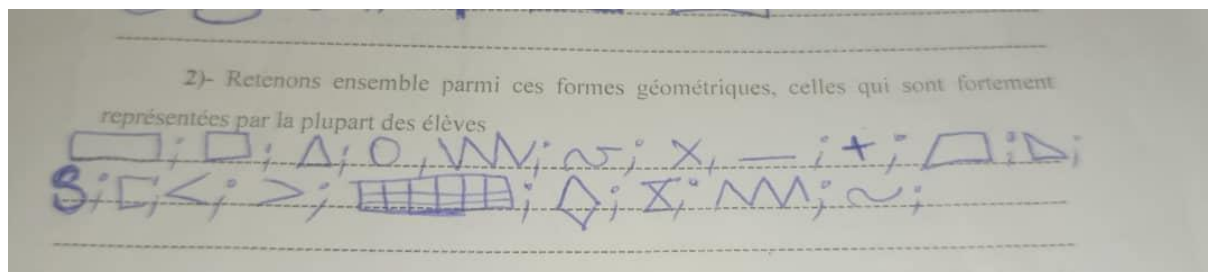 2)- Retenons ensemble parmi ces formes géométriques, celles qui sont fortement
représentées par la plupart des élèves